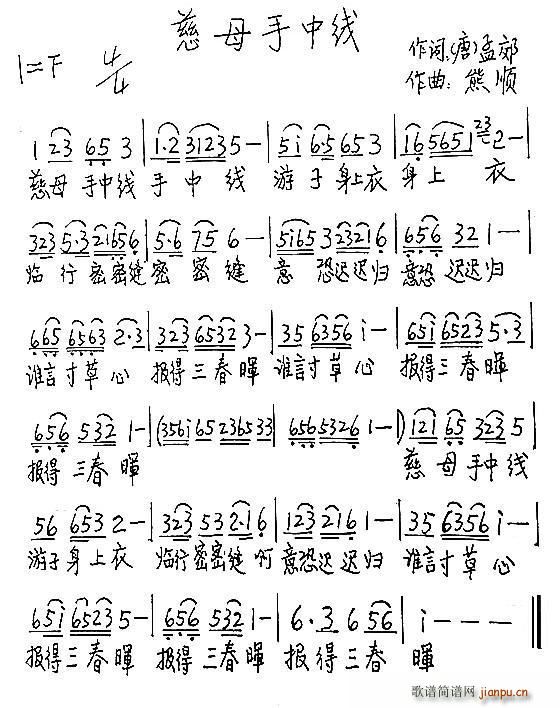 慈母手中线
1=F 4/4
作词:(唐)孟郊
作曲:熊顺
1 23 65 3 | 1·2 3123 5 — | 5i 6·5 65 3 | 16 5651 23 2 — |
慈母 手中线 手 中 线 游 子 身上衣 身上 衣
323 5·3 21656 | 5·6 75 6 — | 5i65 3 2321 6 | 656 32 1 — |
临 行 密密缝 密 密 缝 意 恐迟迟归 意恐 迟迟归
665 6563 2·3 | 323 6532 3 — | 35 6356 i — | 65i 6523 5·3 |
谁言寸草心 报得三春暉 谁言寸草心 报得三春暉
656 532 1 — | (356i 65 236533 | 656 5326 1 — ) | 121 65 323 5 |
报得 三春 暉 慈 母 手中线
56 653 2 — | 323 53 2·1 6 | 123 216 1 — | 35 6356 i — |
游子 身上衣 临行密密缝啊 意恐迟迟归 谁言寸草心
65i 6523 5 — | 656 532 1 — | 6·3 6 56 | i — — — ‖
报得三春暉 报得三春暉 报得三春 暉
歌谱简谱网
jianpu.cn